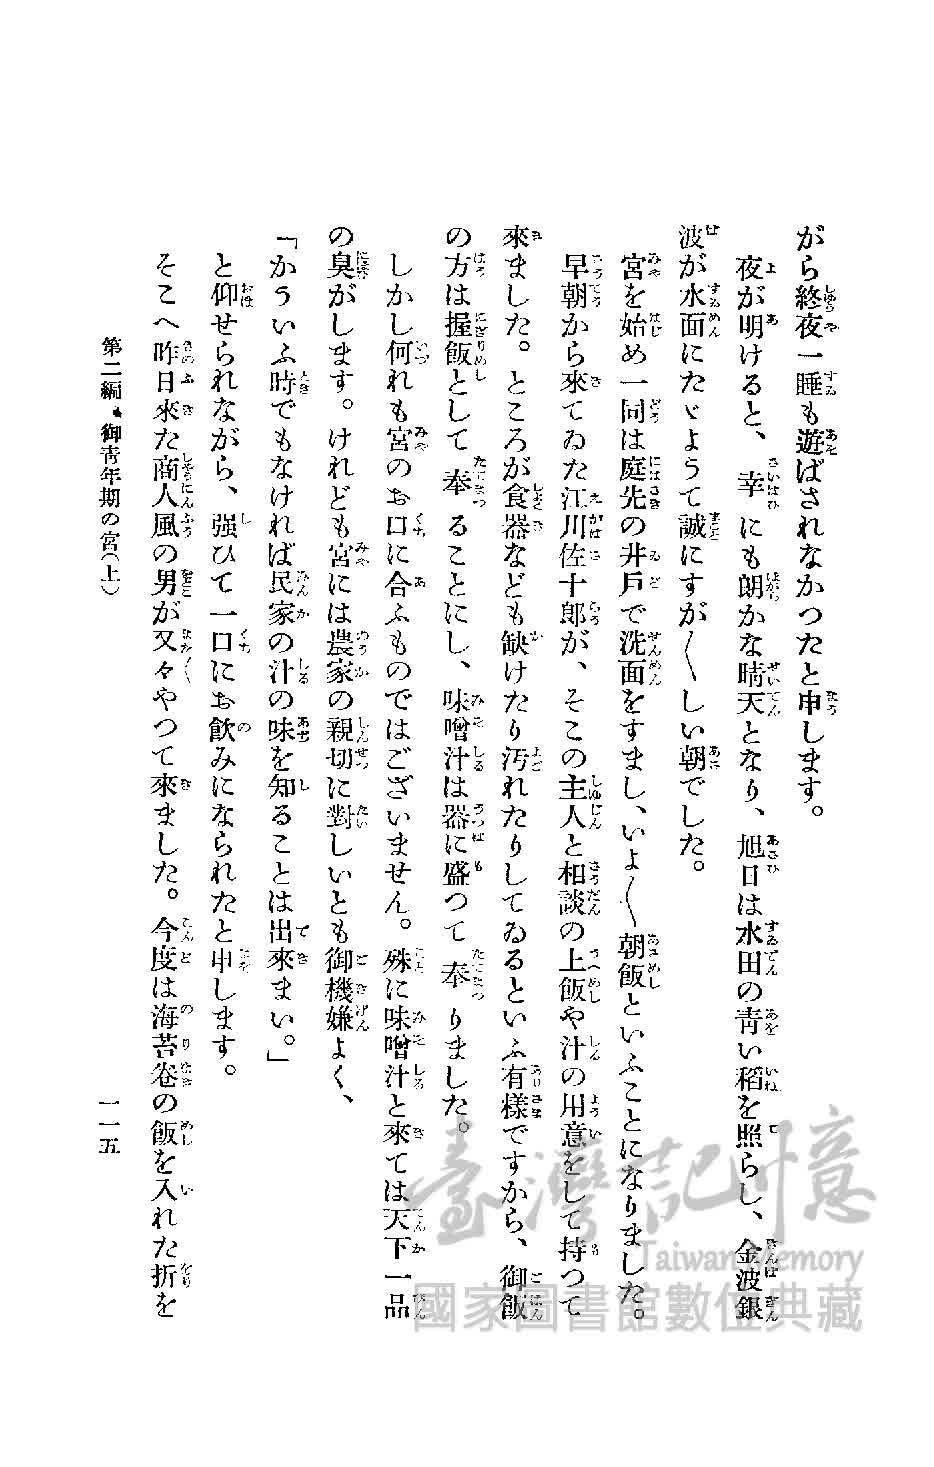 がら終夜一睡も遊ばされなかつたと申します。
夜が明けると、幸にも朗かな晴天となり、旭日は水田の青い稻を照らし、金波銀
波が水面にたゞようて誠にすが〱しい朝でした。
宮を始め一同は庭先の井戸で洗面をすまし、いよ〱朝飯といふことになりました。
早朝から來てゐた江川佐十郎が、そこの主人と相談の上飯や汁の用意をして持つて
來ました。ところが食器なども缺けたり汚れたりしてゐるといふ有樣ですから、御飯
の方は握飯として奉ることにし、味噌汁は器に盛つて奉りました。
しかし何れも宮のお口に合ふものではございません。殊に味噌汁と來ては天下一品
の臭がします。けれども宮には農家の親切に對しいとも御機嫌よく、
「かういふ時でもなければ民家の汁の味を知ることは出來まい。」
と仰せられながら、强ひて一口にお飮みになられたと申します。
そこへ昨日來た商人風の男が又々やつて來ました。今度は海苔卷の飯を入れた折を
第二編 御靑年期の宮(上)
一一五
臺灣記憶
Taiwan Memory
國家圖書館數位典藏